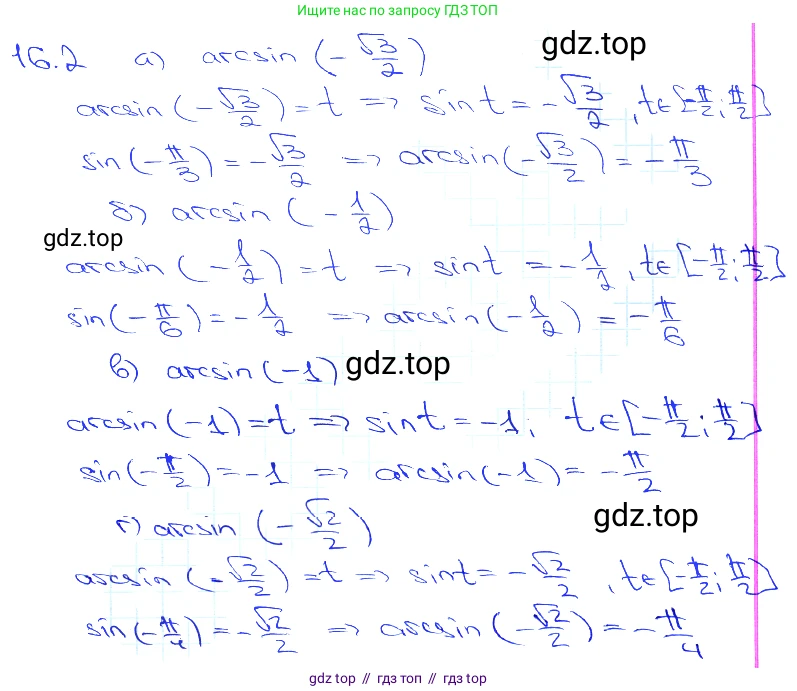 Ищите нас по запросу ГДЗ ТОП
16.2 а) arcsin (-√3/2)
gdz.top
arcsin (-√3/2) = t => sin t = -√3/2, t∈[-π/2; π/2]
sin(-π/3) = -√3/2 => arcsin(-√3/2) = -π/3
б) arcsin (-1/2)
gdz.top
arcsin (-1/2) = t => sin t = -1/2, t∈[-π/2; π/2]
sin(-π/6) = -1/2 => arcsin(-1/2) = -π/6
в) arcsin(-1)
gdz.top
arcsin(-1) = t => sin t = -1; t∈[-π/2; π/2]
sin(-π/2) = -1 => arcsin(-1) = -π/2
г) arcsin (-√2/2)
gdz.top
arcsin (-√2/2) = t => sin t = -√2/2, t∈[-π/2; π/2]
sin(-π/4) = -√2/2 => arcsin(-√2/2) = -π/4
gdz.top // гдз.топ // gdz.top